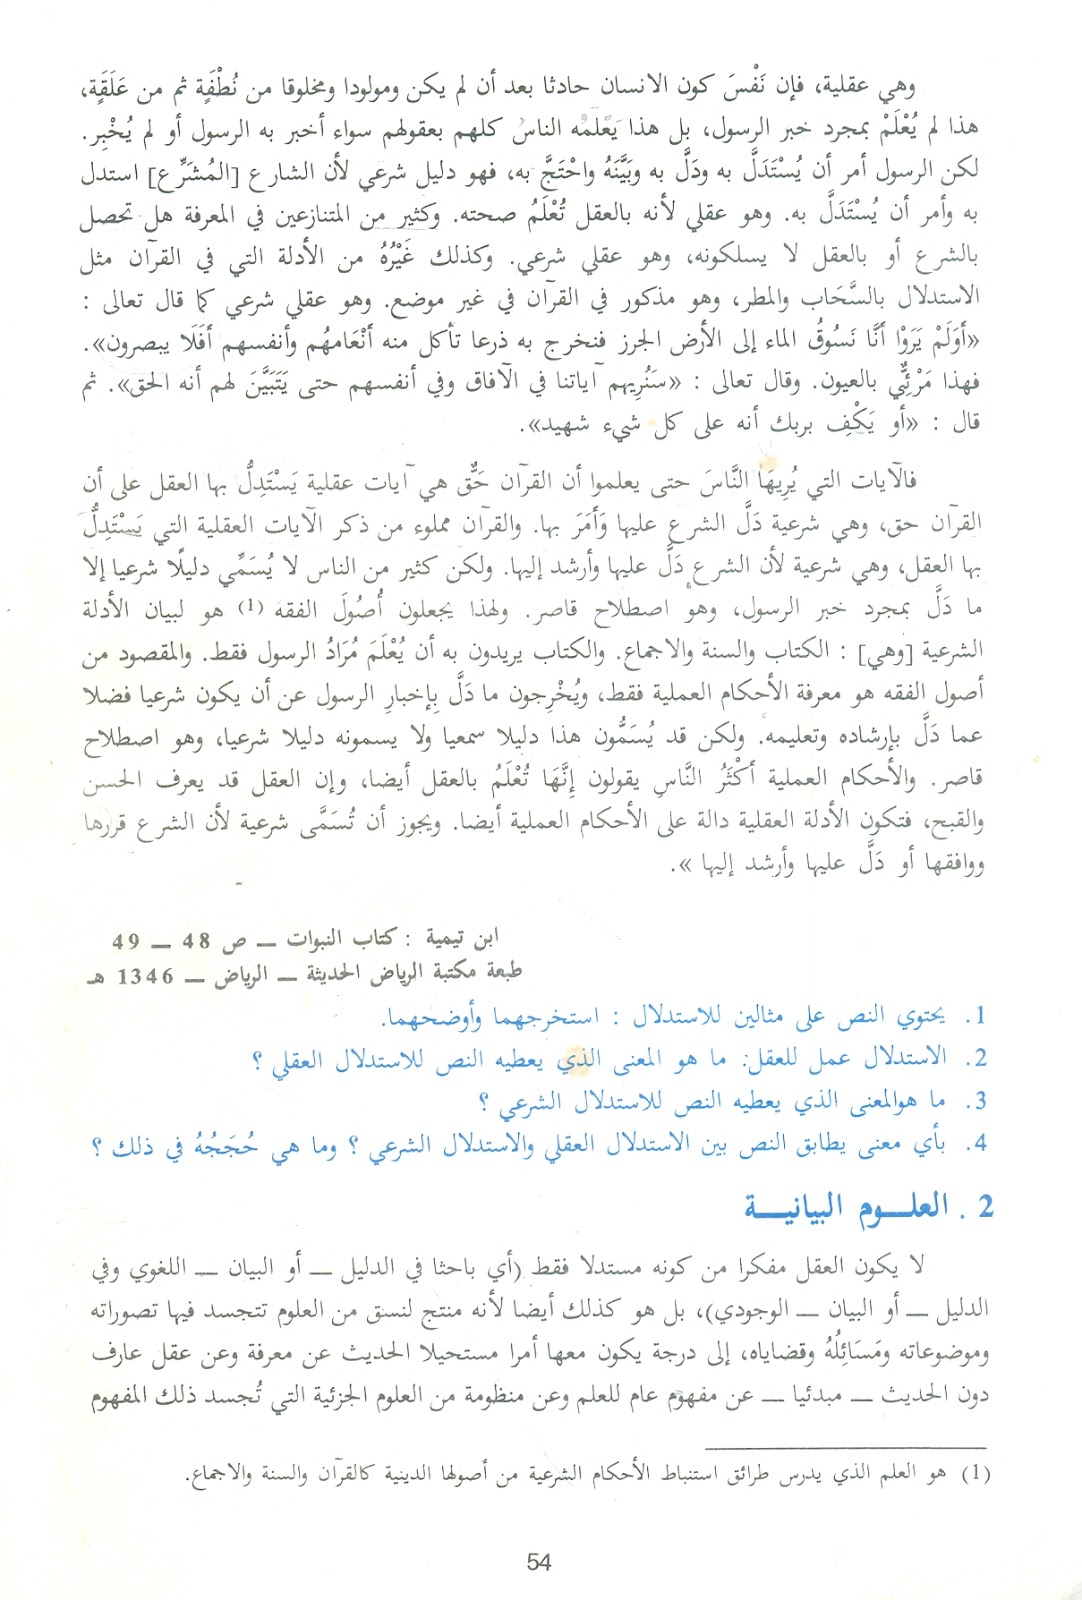 وهي عقلية، فإن نَفْسَ كون الانسان حادثا بعد أن لم يكن ومولودا ومخلوقا من نُطْفَةٍ ثم من عَلَقَةٍ،
هذا لم يُعْلَمْ بمجرد خبر الرسول، بل هذا يَعْلَمُه الناسُ كلهم بعقولهم سواء أخبر به الرسول أو لم يُخْبِر.
لكن الرسول أمر أن يُسْتَدَلَّ به ودَلَّ به وَبَيَّنَهُ واحْتَجَّ به، فهو دليل شرعي لأن الشارع [المُشَرِّع] استدل
به وأمر أن يُسْتَدَلَّ به. وهو عقلي لأنه بالعقل تُعْلَمُ صحته. وكثير من المتنازعين في المعرفة هل تحصل
بالشرع أو بالعقل لا يسلكونه، وهو عقلي شرعي. وكذلك غَيْرُهُ من الأدلة التي في القرآن مثل
الاستدلال بالسَّحَاب والمطر، وهو مذكور في القرآن في غير موضع. وهو عقلي شرعي كما قال تعالى :
«أَوَلَمْ يَرَوْا أَنَّا نَسُوقُ الماء إلى الأرض الجرز فنخرج به ذرعا تأكل منه أَنْعَامهُم وأنفسهم أفَلَا يبصرون».
فهذا مَرْئِيٌّ بالعيون. وقال تعالى : «سَنُرِيهم آياتنا في الآفاق وفي أنفسهم حتى يَتَبَيَّنَ لهم أنه الحق». ثم
قال : «أو يَكْفِ بربك أنه على كل شيء شهيد».
فالآيات التي يُرِيهَا النَّاسَ حتى يعلموا أن القرآن حَقٌّ هي آيات عقلية يَسْتَدِلُّ بها العقل على أن
القرآن حق، وهي شرعية دَلَّ الشرع عليها وَأَمَرَ بها. والقرآن مملوء من ذكر الآيات العقلية التي يَسْتَدِلُّ
بها العقل، وهي شرعية لأن الشرع دَلَّ عليها وأرشد إليها. ولكن كثير من الناس لا يُسَمِّي دليلًا شرعيا إلا
ما دَلَّ بمجرد خبر الرسول، وهو اصطلاح قاصر. ولهذا يجعلون أُصُولَ الفقه (1) هو لبيان الأدلة
الشرعية [وهي] : الكتاب والسنة والاجماع. والكتاب يريدون به أن يُعْلَمَ مُرَادُ الرسول فقط. والمقصود من
أصول الفقه هو معرفة الأحكام العملية فقط، ويُخْرِجون ما دَلَّ بِإخبارِ الرسول عن أن يكون شرعيا فضلا
عما دَلَّ بإرشاده وتعليمه. ولكن قد يُسَمُّون هذا دليلا سمعيا ولا يسمونه دليلا شرعيا، وهو اصطلاح
قاصر. والأحكام العملية أكْثَرُ النَّاسِ يقولون إنَّهَا تُعْلَمُ بالعقل أيضا، وإن العقل قد يعرف الحسن
والقبح، فتكون الأدلة العقلية دالة على الأحكام العملية أيضا. ويجوز أن تُسَمَّى شرعية لأن الشرع قررها
ووافقها أو دَلَّ عليها وأرشد إليها ».
ابن تيمية : كتاب النبوات ــ ص 48 ــ 49
طبعة مكتبة الرياض الحديثة ــ الرياض ــ 1346 هـ
1. يحتوي النص على مثالين للاستدلال : استخرجهما وأوضحهما.
2. الاستدلال عمل للعقل: ما هو المعنى الذي يعطيه النص للاستدلال العقلي ؟
3. ما هوالمعنى الذي يعطيه النص للاستدلال الشرعي ؟
4. بأي معنى يطابق النص بين الاستدلال العقلي والاستدلال الشرعي ؟ وما هي حُجَجُهُ في ذلك ؟
2 . العلـــوم البيانيـــة
لا يكون العقل مفكرا من كونه مستدلا فقط (أي باحثا في الدليل ــ أو البيان ــ اللغوي وفي
الدليل ــ أو البيان ــ الوجودي)، بل هو كذلك أيضا لأنه منتج لنسق من العلوم تتجسد فيها تصوراته
وموضوعاته ومَسَائِلُهُ وقضاياه، إلى درجة يكون معها أمرا مستحيلا الحديث عن معرفة وعن عقل عارف
دون الحديث ــ مبدئيا ــ عن مفهوم عام للعلم وعن منظومة من العلوم الجزئية التي تُجسد ذلك المفهوم
(1) هو العلم الذي يدرس طرائق استنباط الأحكام الشرعية من أصولها الدينية كالقرآن والسنة والاجماع.
54